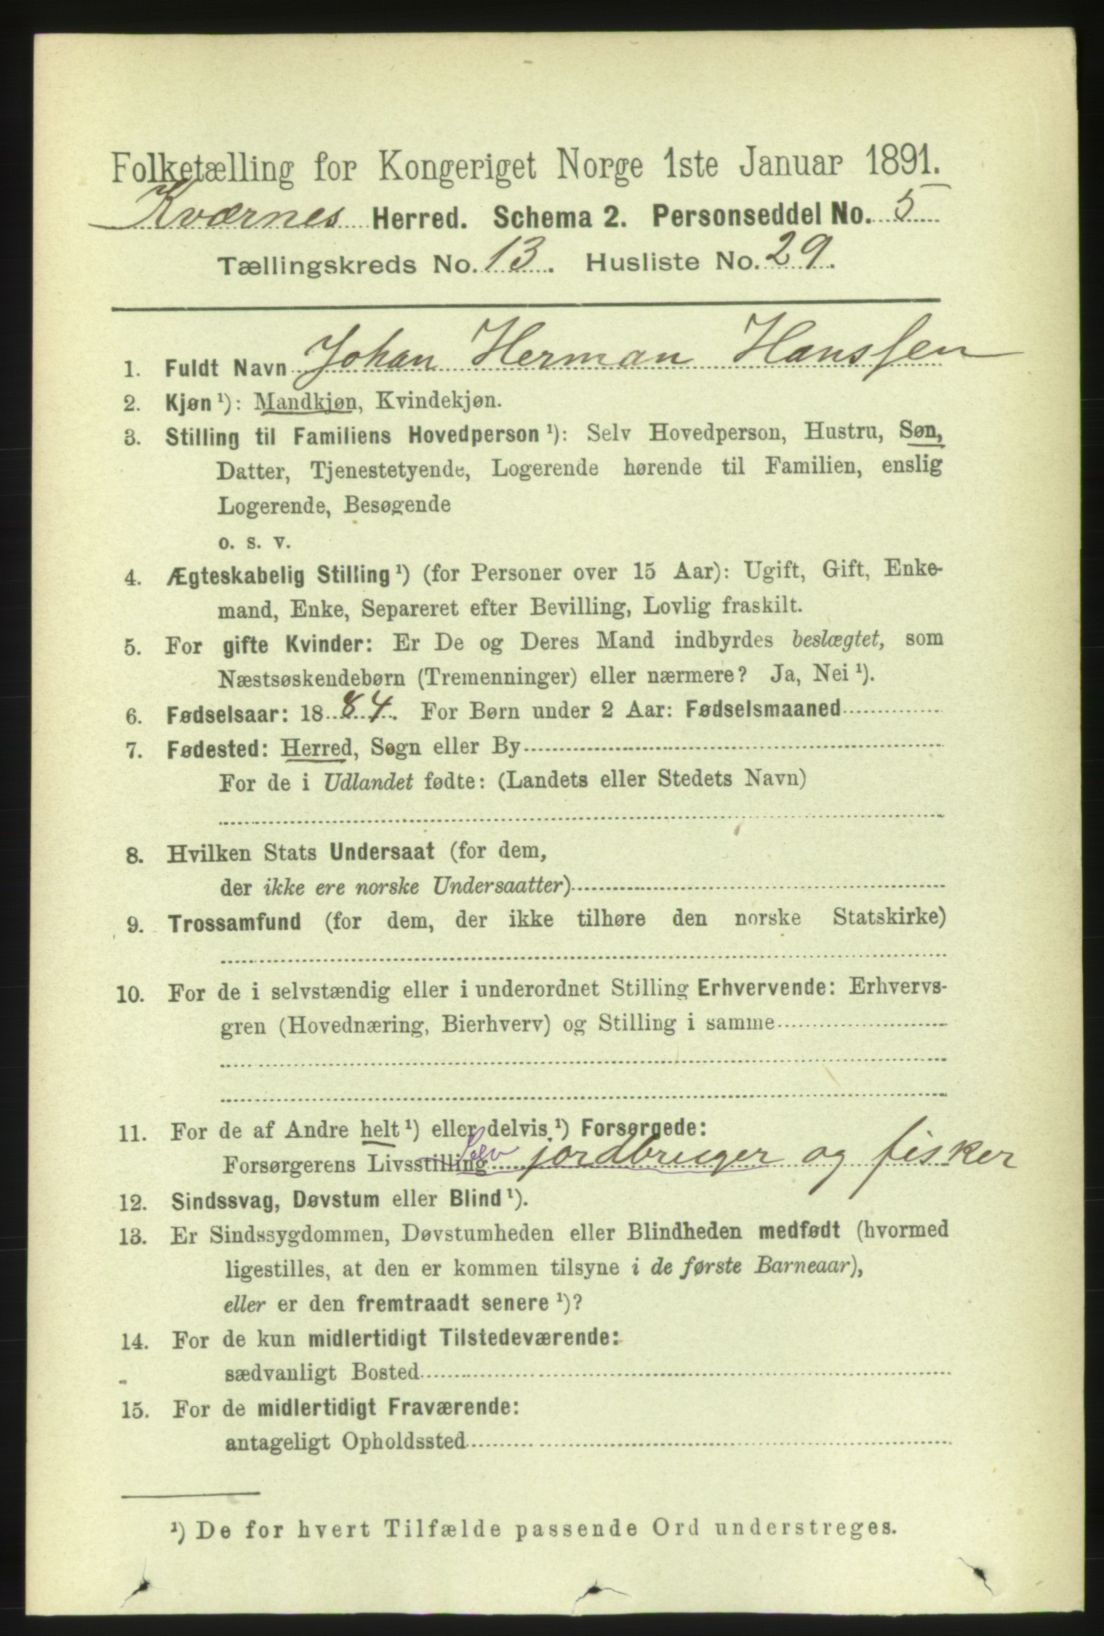 Folketælling for Kongeriget Norge 1ste Januar 1891.
Kværnes Herred. Schema 2. Personseddel No. 5
Tællingskreds No. 13. Husliste No. 29.
1. Fuldt Navn Johan Herman Hanssen
2. Kjøn ¹): Mandkjøn, Kvindekjøn.
3. Stilling til Familiens Hovedperson ¹): Selv Hovedperson, Hustru, Søn,
Datter, Tjenestetyende, Logerende hørende til Familien, enslig
Logerende, Besøgende
o. s. v.
4. Ægteskabelig Stilling ¹) (for Personer over 15 Aar): Ugift, Gift, Enke-
mand, Enke, Separeret efter Bevilling, Lovlig fraskilt.
5. For gifte Kvinder: Er De og Deres Mand indbyrdes beslægtet, som
Næstsøskendebørn (Tremenninger) eller nærmere? Ja, Nei ¹).
6. Fødselsaar: 1884. For Børn under 2 Aar: Fødselsmaaned
7. Fødested: Herred, Sogn eller By
For de i Udlandet fødte: (Landets eller Stedets Navn)
8. Hvilken Stats Undersaat (for dem,
der ikke ere norske Undersaatter)
9. Trossamfund (for dem, der ikke tilhøre den norske Statskirke)
10. For de i selvstændig eller i underordnet Stilling Erhvervende: Erhvervs-
gren (Hovednæring, Bierhverv) og Stilling i samme
11. For de af Andre helt ¹) eller delvis ¹) Forsørgede:
Forsørgerens Livsstilling Selv jordbruger og fisker
12. Sindssvag, Døvstum eller Blind ¹).
13. Er Sindssygdommen, Døvstumheden eller Blindheden medfødt (hvormed
ligestilles, at den er kommen tilsyne i de første Barneaar),
eller er den fremtraadt senere ¹)?
14. For de kun midlertidigt Tilstedeværende:
sædvanligt Bosted
15. For de midlertidigt Fraværende:
antageligt Opholdssted
¹) De for hvert Tilfælde passende Ord understreges.